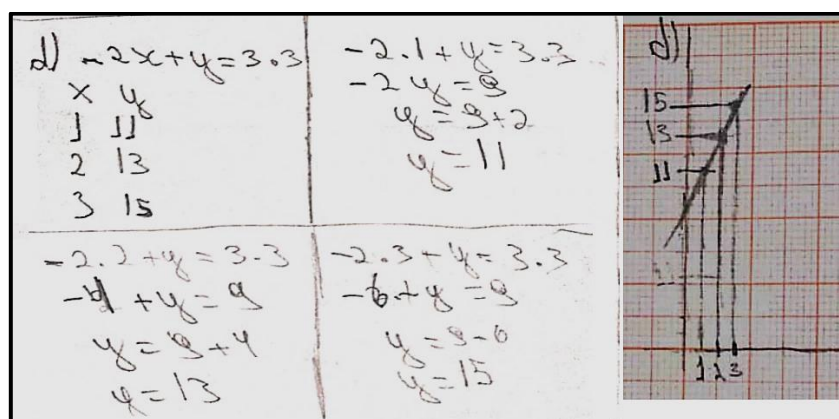 d) -2x+y=3.3
x y
1 11
2 13
3 15
-2.1+y=3.3
-2y=9
y=9+2
y=11
-2.2+y=3.3
-4+y=9
y=9+4
y=13
-2.3+y=3.3
-6+y=9
y=9-6
y=15
d)
15
13
11
1 2 3